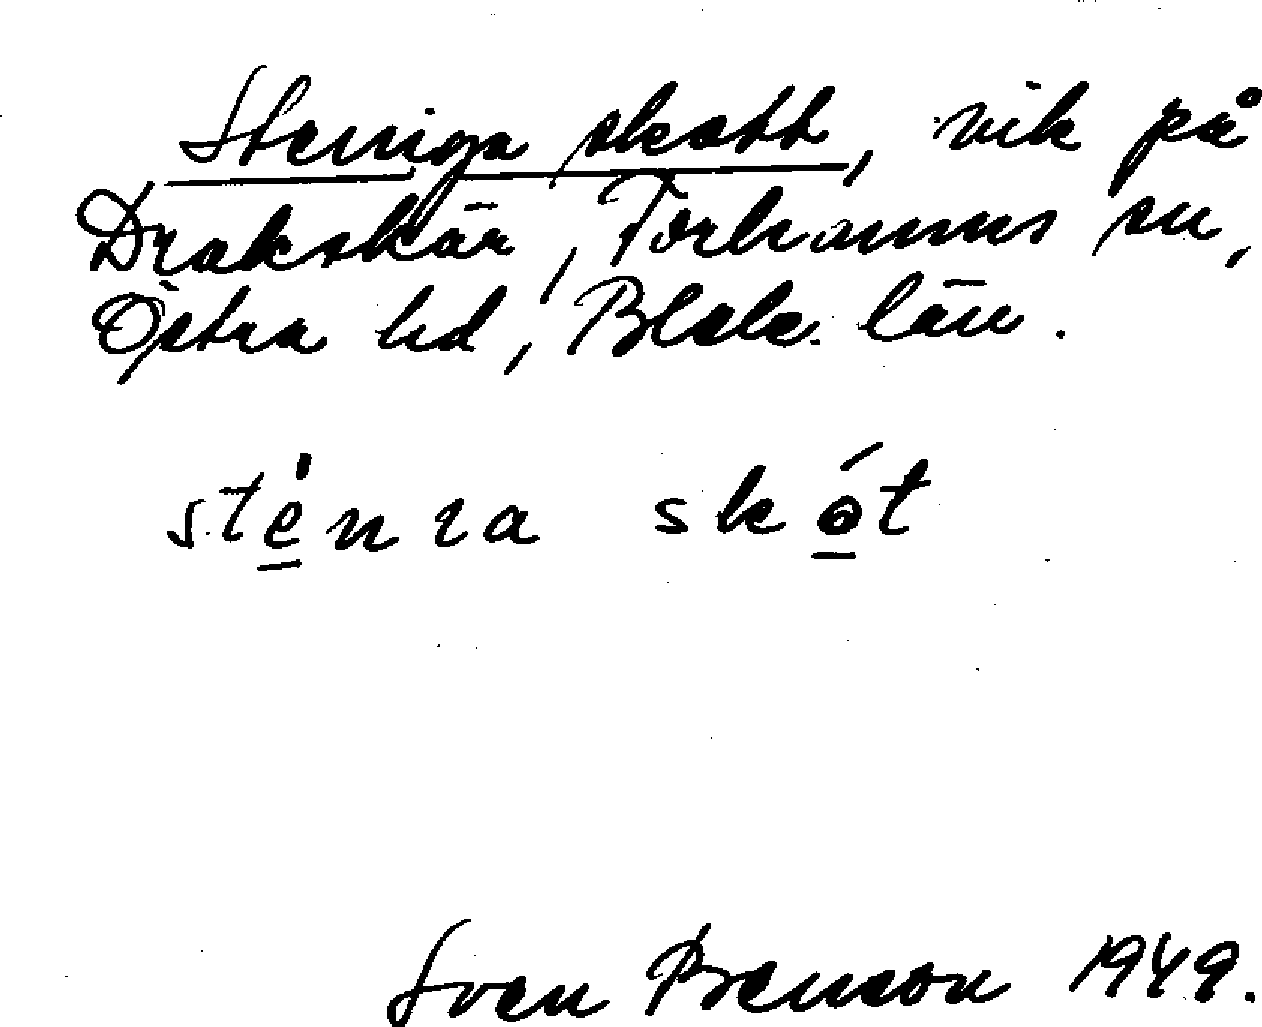 Steniga skott, vik på
Drakskär, Torhamns sn,
Östra hd, Blek. län.
sténıa skót
Sven Benson 1949.